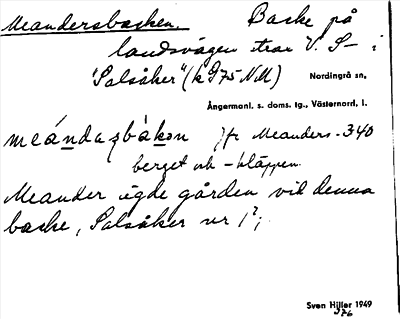 Meandersbacken. Backe på
landsvägen strax V. S – i
"Salsåker" (k 975 NM)
Nordingrå sn,
Ångermanl. s. doms. tg., Västernord, l.
meándaʂbàkən jfr Meanders-340
berget och -kläppen.
Meander ägde gården vid denna
backe, Salsåker nr 1²,
Sven Hiller 1949
376